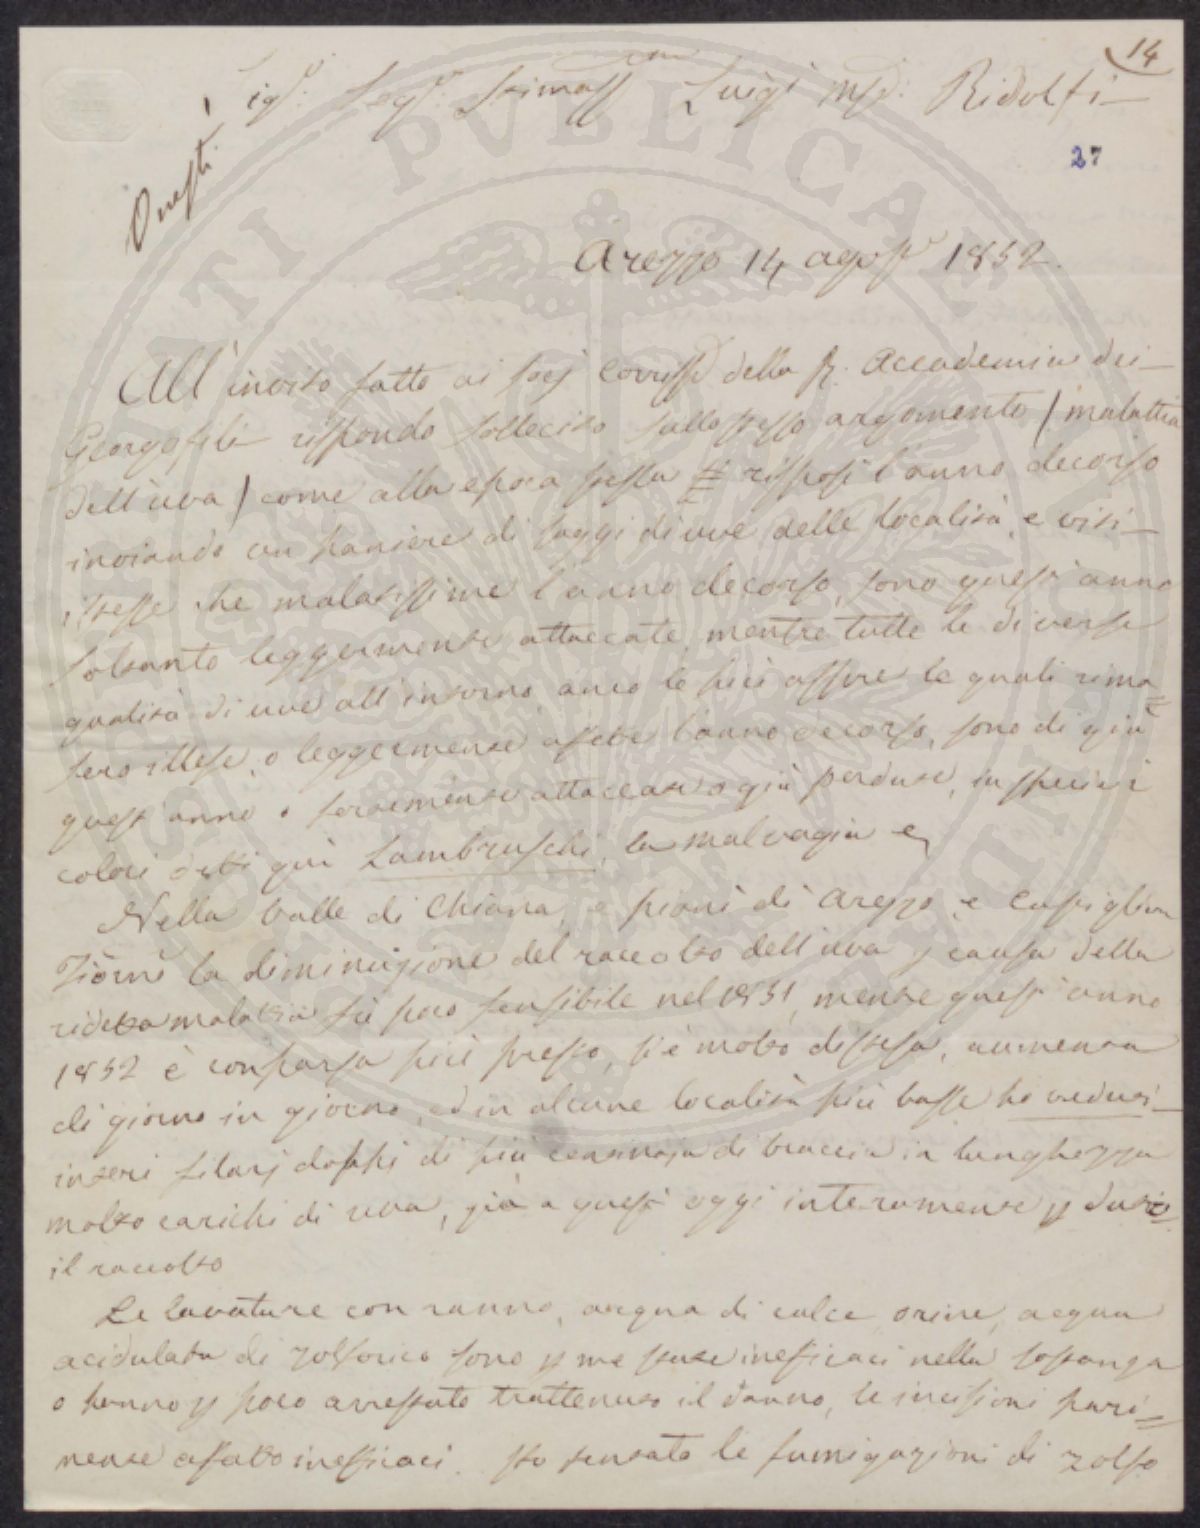 14
Sigr. Segr. Stimatssmo Luigi Mse. Ridolfi
Onesti
27
Arezzo 14 agosto 1852.
All'invito fatto ai socj corrissp. della R. Accademia dei
Georgofili rispondo sollecito sullo stesso argomento / malattia
dell'uva / come alla epoca stessa risposi l'anno decorso
inviando un paniere di saggi di uve delle località, e viti
istesse che malatissime l'anno decorso, sono quest'anno
soltanto leggermente attaccate, mentre tutte le diverse
qualità di uve all'intorno, anco le più aspre le quali rima=
sero illese, o leggermente affette l'anno decorso, sono di già
quest'anno o fortemente attaccate o già perdute, in specie i
colori detti quì Lambruschi, la malvagia e
Nella valle di Chiana, e piani di Arezzo, e Castiglion
Fiorni la diminuzione del raccolto dell'uva p causa della
ridetta malattia fù poco sensibile nel 1851, mentre quest'anno
1852 è comparsa più presto, si è molto distesa, aumenta
di giorno in giorno, ed in alcune località più basse ho veduti
interi filarj doppi di più centinaja di braccia in lunghezza
molto carichi di uva, già a quest'oggi interamente p duto=
il raccolto
Le lavature con ranno, acqua di calce, orine, acqua
acidulata di zolforico sono p me state inefficaci nella sostanza
o hanno p poco arrestato trattenuto il danno, le incisioni pari=
mente affatto inefficaci. Ho tentato le fumigazioni di zolfo